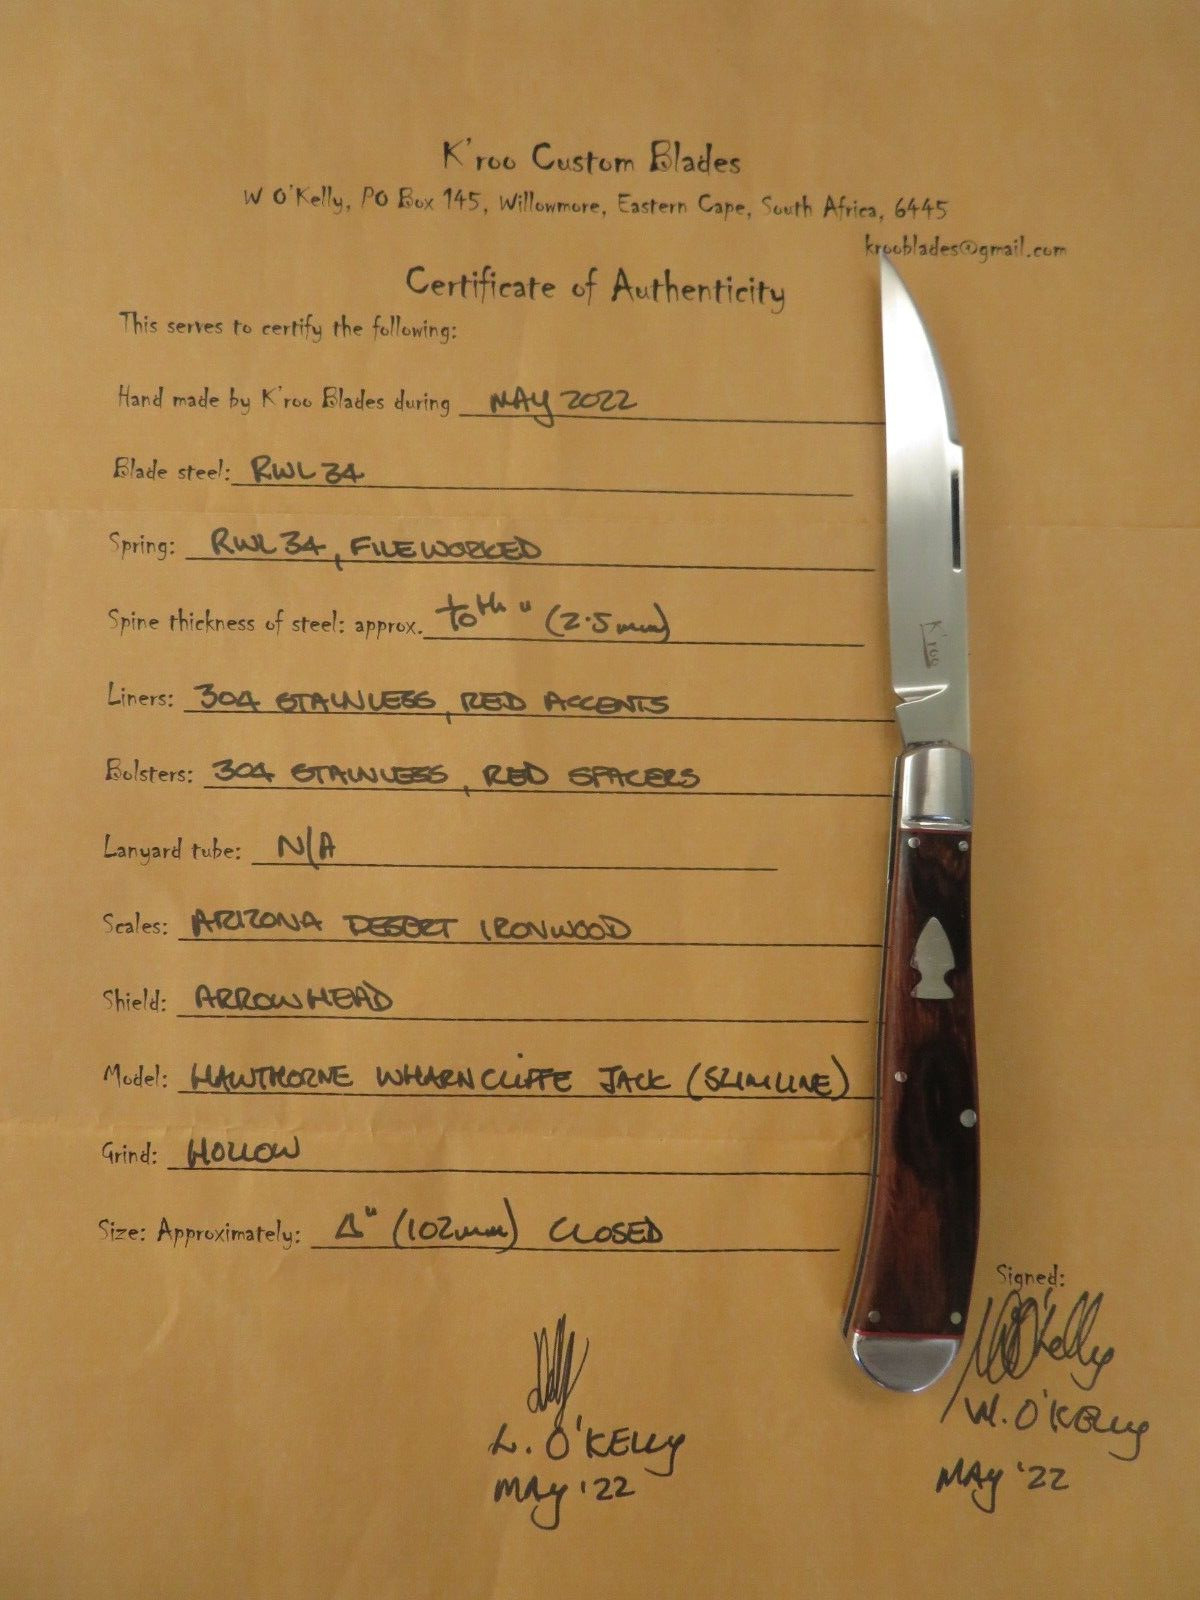 K'roo Custom Blades
W O'Kelly, PO Box 145, Willowmore, Eastern Cape, South Africa, 6445
krooblades@gmail.com
Certificate of Authenticity
This serves to certify the following:
Hand made by K'roo Blades during MAY 2022
Blade steel: RWL 34
Spring: RWL 34, FILEWORKED
Spine thickness of steel: approx. 1/10th " (2.5mm)
Liners: 304 STAINLESS, RED ACCENTS
Bolsters: 304 STAINLESS, RED SPACERS
Lanyard tube: N/A
Scales: ARIZONA DESERT IRONWOOD
Shield: ARROWHEAD
Model: HAWTHORNE WHARNCLIFFE JACK (SLIMLINE)
Grind: HOLLOW
Size: Approximately: 4" (102mm) CLOSED
K'roo
Signed:
W O'Kelly
L. O'KELLY
W. O'KELLY
MAY '22
MAY '22